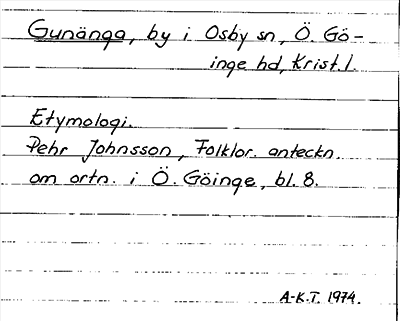 Gunänga, by i Osby sn, Ö. Gö-
inge hd, Krist. l.
Etymologi.
Pehr Johnsson, Folklor. anteckn.
om ortn. i Ö. Göinge, bl. 8.
A-K.T. 1974.